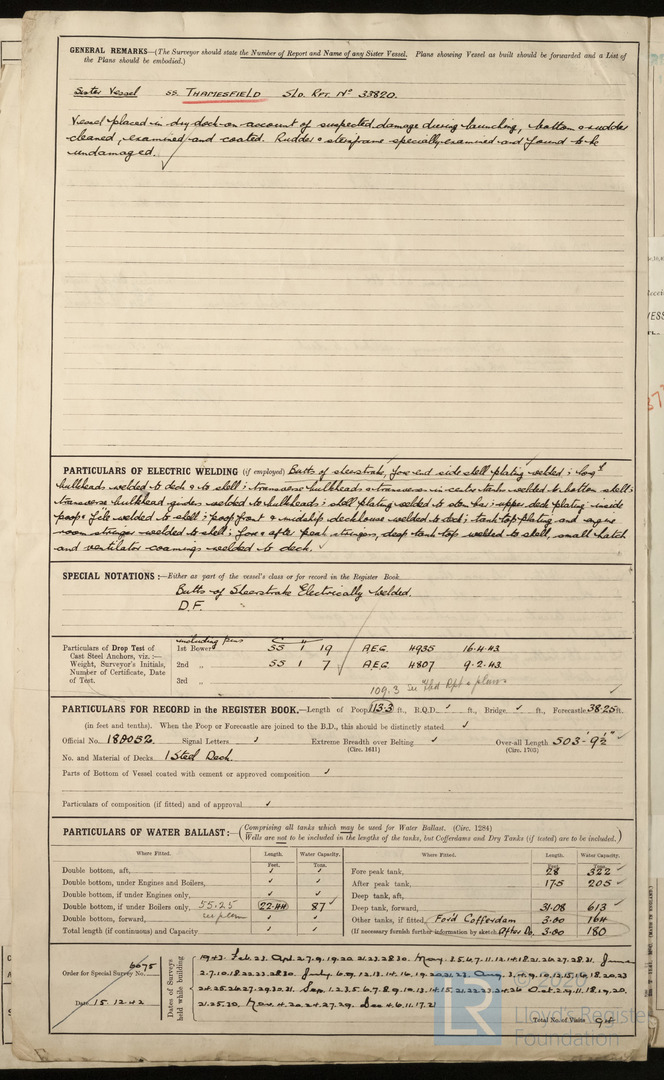 GENERAL REMARKS—(The Surveyor should state the Number of Report and Name of any Sister Vessel. Plans showing Vessel as built should be forwarded and a List of
the Plans should be embodied.)
Sister Vessel SS. THAMESFIELD Sld. Rpt. No 33820.
Vessel placed in dry dock on account of suspected damage during launching, bottom & rudder
cleaned, examined and coated. Rudder & sternframe specially examined and found to be
undamaged.
PARTICULARS OF ELECTRIC WELDING (if employed) Butts of sheerstrake, fore end side shell plating welded; longl
bulkheads welded to deck & to shell; transverse bulkheads & transverses in centre tanks welded to bottom shell;
transverse bulkhead girders welded to bulkheads; shell plating welded to stem bar; upper deck plating inside
poop & fcle welded to shell; poop front & midship deckhouse welded to deck; tank top plating and engine
room stringer welded to shell; fore & after peak stringers, deep tank top welded to shell, small hatch
and ventilator coamings welded to deck.
SPECIAL NOTATIONS:—Either as part of the vessel's class or for record in the Register Book
Butts of Sheerstrake Electrically Welded.
D.F.
including pins
Particulars of Drop Test of
Cast Steel Anchors, viz. :—
Weight, Surveyor's Initials,
Number of Certificate, Date
of Test.
1st Bower 55 1 19 A.E.G. 4935 16.4.43
2nd „ 55 1 7 A.E.G. 4807 9.2.43
3rd „
109.3 See Dpt & plans
PARTICULARS FOR RECORD in the REGISTER BOOK.—Length of Poop 113.3 ft., R.Q.D. ft., Bridge ft., Forecastle 38.25 ft.
(in feet and tenths). When the Poop or Forecastle are joined to the B.D., this should be distinctly stated
Official No. 180052 Signal Letters Extreme Breadth over Belting Over-all Length 503'-9½"
(Circ. 1611) (Circ. 1703)
No. and Material of Decks 1 Steel Deck.
Parts of Bottom of Vessel coated with cement or approved composition
Particulars of composition (if fitted) and of approval
PARTICULARS OF WATER BALLAST:—(Comprising all tanks which may be used for Water Ballast. (Circ. 1284)
Wells are not to be included in the lengths of the tanks, but Cofferdams and Dry Tanks (if tested) are to be included.)
Where Fitted. Length. Water Capacity. Where Fitted. Length. Water Capacity.
Feet. Tons. Feet. Tons.
Double bottom, aft, Fore peak tank, 28 322
Double bottom, under Engines and Boilers After peak tank, 17.5 205
Double bottom, if under Engines only, Deep tank, aft,
Double bottom, if under Boilers only, 55.25 22.44 87 Deep tank, forward, 31.08 613
Double bottom, forward, Other tanks, if fitted, Ford Cofferdam 3.00 164
Total length (if continuous) and Capacity (If necessary furnish further information by sketch.) After Do. 3.00 180
Order for Special Survey No. 6675
Date 15.12.42
Dates of Surveys
held while building
1943. Feb. 23. Apl. 2.7.9.19.20.21.23.28.30. May. 3.5.6.7.11.12.14.18.21.26.27.28.31. June
Total No. of Visits 94
© 2020
LR
Lloyd's Register
Foundation